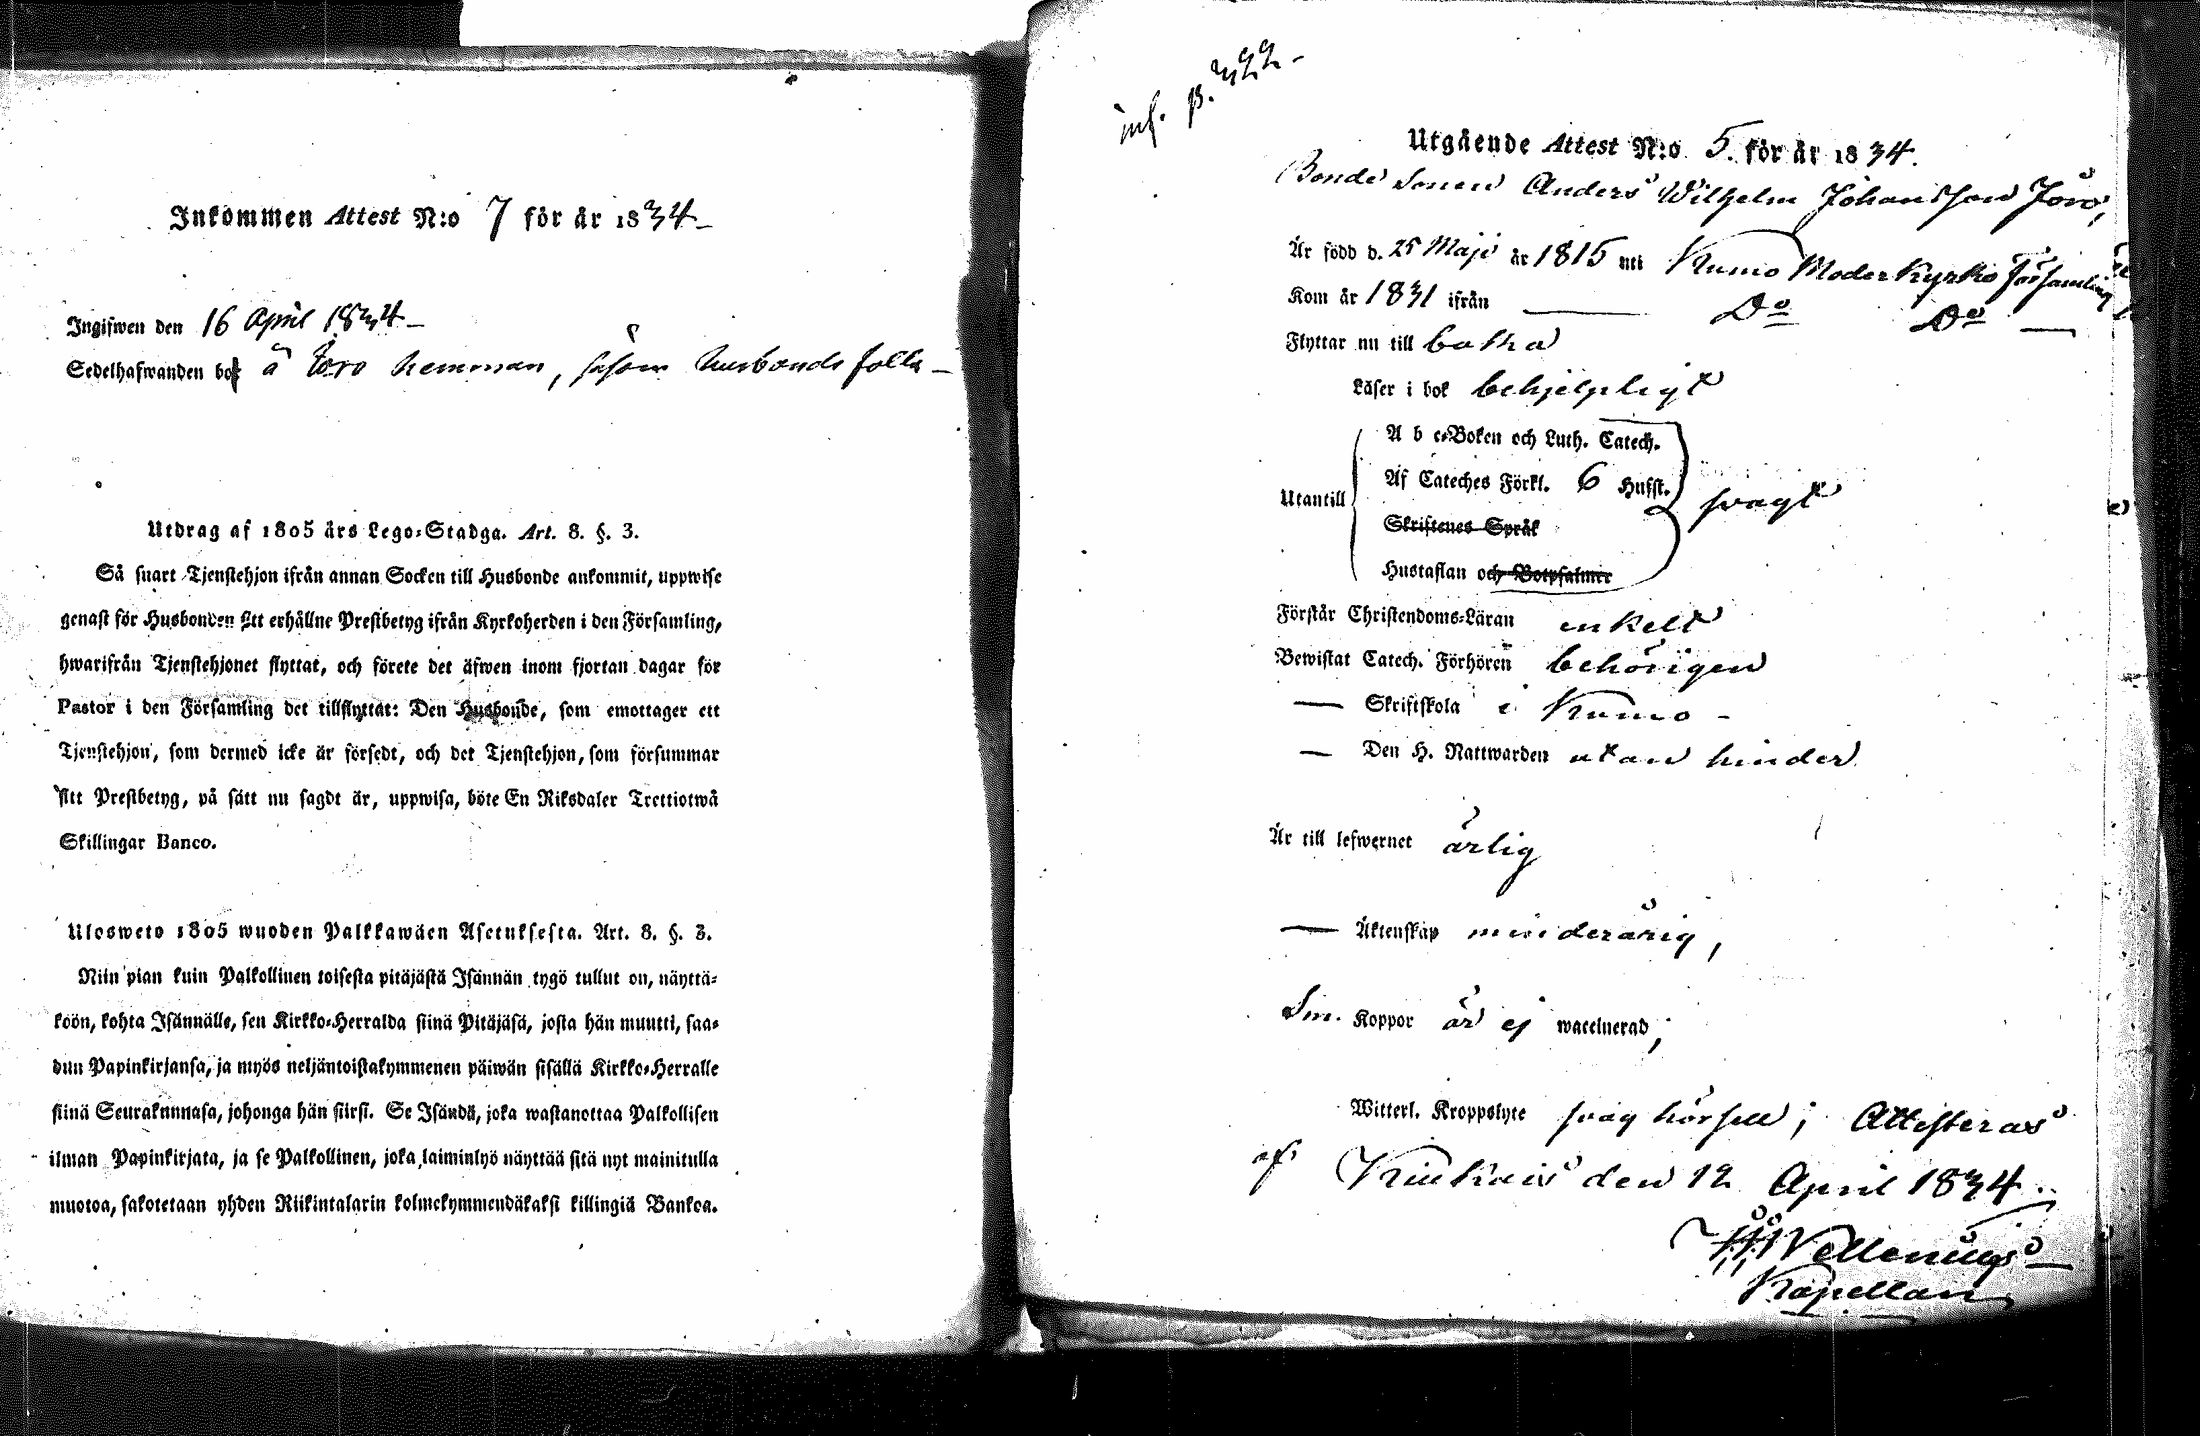 Inkommen Attest N:o 7 för år 1834
Ingifwen den 16 April 1834
Sedelhafwanden bor å Joro hemman, såsom husbonds folk
Utdrag af 1805 års Lego-Stadga. Art. 8. §. 3.
Så snart Tjenstehjon ifrån annan Socken till Husbonde ankommit, uppwise
genast för Husbonden sitt erhållne Prestbetyg ifrån Kyrkoherden i den Församling,
hwarifrån Tjenstehjonet flyttat, och förete det äfwen inom fjortan dagar för
Pastor i den Församling det tillflyttat: Den Husbonde, som emottager ett
Tjenstehjon, som dermed icke är försedt, och det Tjenstehjon, som försummar
sitt Prestbetyg, på sätt nu sagdt är, uppwisa, böte En Riksdaler Trettiotwå
Skillingar Banco.
Ulosweto 1805 wuoden Palkkawäen Asetuksesta. Art. 8. §. 3.
Niin pian kuin Palkollinen toisesta pitäjästä Isännän tygö tullut on, näyttä-
köön, kohta Isännälle, sen Kirkko-Herralda siinä Pitäjäsä, josta hän muutti, saa-
dun Papinkirjansa, ja myös neljäntoistakymmenen päiwän sisällä Kirkko-Herralle
siinä Seurakunnasa, johonga hän siirsi. Se Isändä, joka wastanottaa Palkollisen
ilman Papinkirjata, ja se Palkollinen, joka laiminlyö näyttää sitä nyt mainitulla
muotoa, sakotetaan yhden Riikintalarin kolmekymmendäkaksi killingiä Bankoa.
inf. p. 322
Utgående Attest N:o 5. för år 1834.
Bonde Sonen Anders Wilhelm Johansson Joro,
Är född d. 25 Maji år 1815 uti Kumo Moder Kyrko Församling
Kom år 1831 ifrån — Do Do —
Flyttar nu till baka
Läser i bok behjelpligt
A b c-Boken och Luth. Catech.
Af Cateches Förkl. 6 Hufst.
Utantill svagt
Skriftenes Språk
Hustaflan och Botpsalmer
Förstår Christendoms-Läran enkelt
Bewistat Catech. Förhören behörigen
— Skriftskola i Kumo
— Den H. Nattwarden utan hinder
Är till lefwernet ärlig
— Äktenskap minderårig,
Sm. Koppor är ej waccinerad;
Witterl. Kroppslyte svag hörsell; Attesteras
af Kiukais den 12 April 1834.
Wellenius
Kapellan